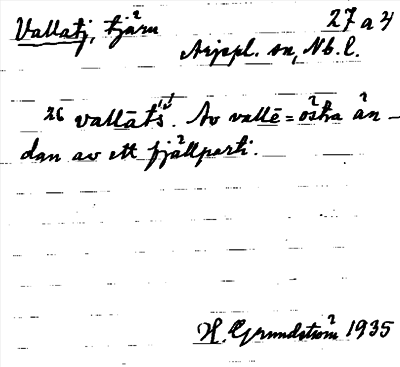 Vallatj, tjärn 27 a 4
Arjepl. sn, Nb. l.
26 vallāts̀. Av vallē = östra än-
dan av ett fjällparti.
H. Grundström 1935